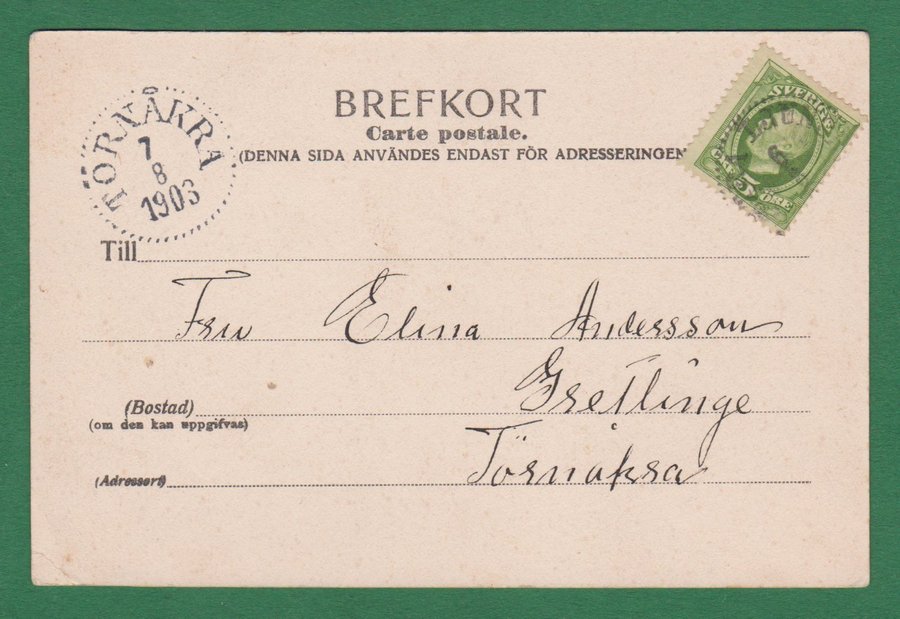 BREFKORT
Carte postale.
(DENNA SIDA ANVÄNDES ENDAST FÖR ADRESSERINGEN
TÖRNÅKRA
7
8
1903
SVERIGE
5
ÖRE
Till
Fru Elina Andersson
(Bostad)
Gretlinge
(om den kan uppgifvas)
(Adressort)
Törnåkra